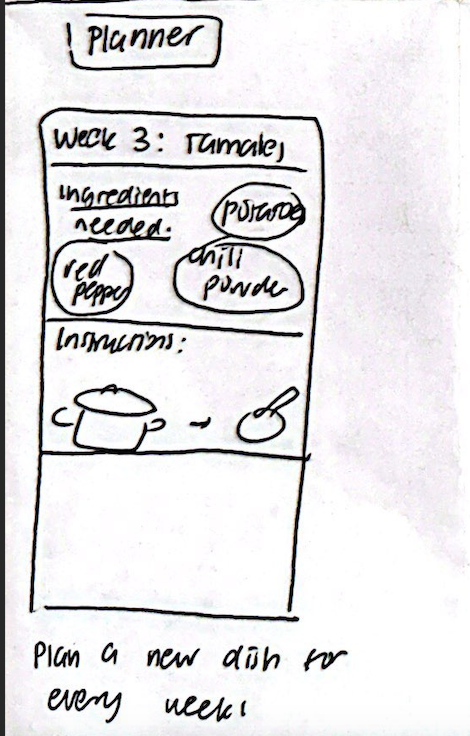 Planner
Week 3: Tamales
Ingredients
needed.
potatoes
red
pepper
chili
powder
Instructions:
Plan a new dish for
every week!